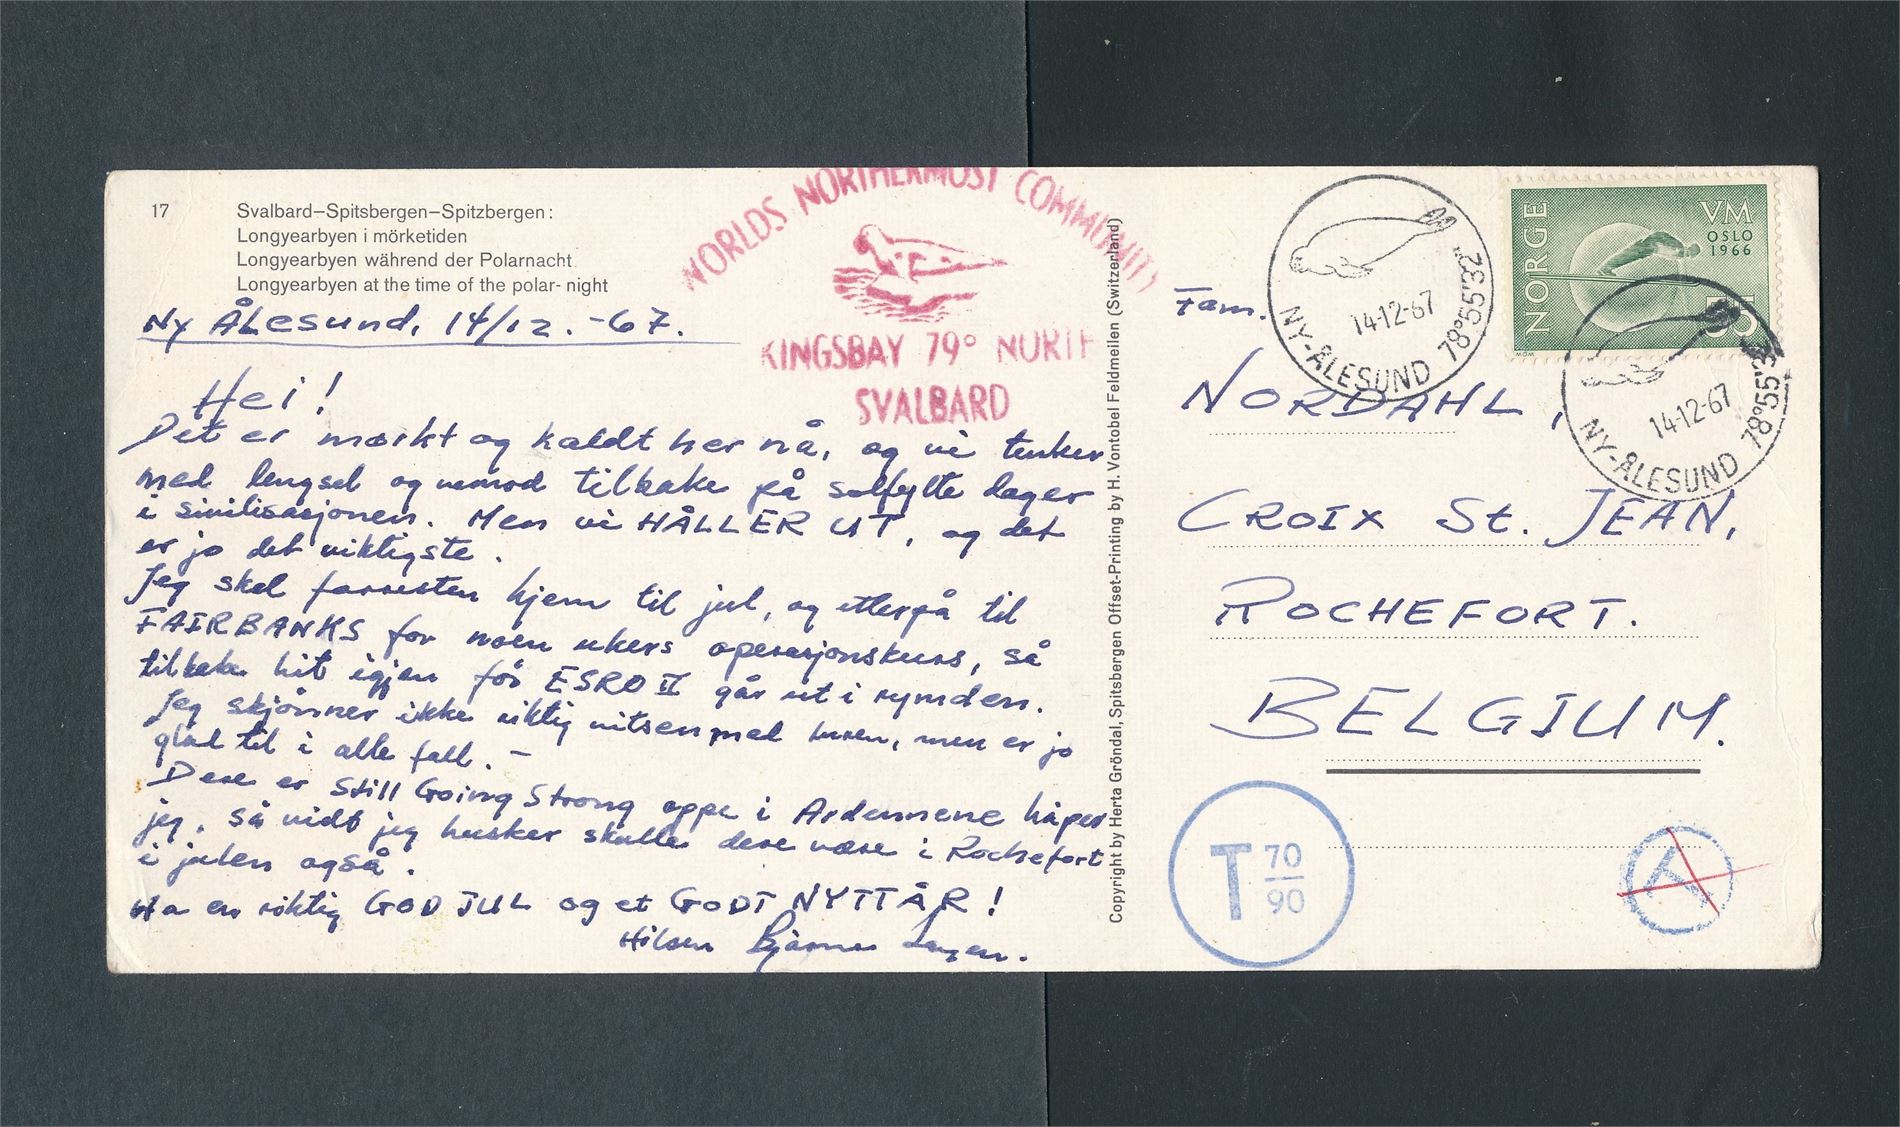 17
Svalbard–Spitsbergen–Spitzbergen:
Longyearbyen i mörketiden
Longyearbyen während der Polarnacht
Longyearbyen at the time of the polar- night
WORLDS NORTHERMOST COMMUNITY
KINGSBAY 79° NORTH
SVALBARD
Ny Ålesund, 14/12.-67.
Hei!
Det er mørkt og kaldt her nå, og vi tenker
med lengsel og vemod tilbake på solfylte dager
i sivilisasjonen. Men vi HÅLLER UT, og det
er jo det viktigste.
Jeg skal forresten hjem til jul, og etterpå til
FAIRBANKS for noen ukers operasjonskurs, så
tilbake hit igjen før ESRO II går ut i rymden.
Jeg skjønner ikke riktig vitsen med turen, men er jo
glad til i alle fall. –
Dere er Still Going Strong oppe i Ardennene håper
jeg. Så vidt jeg husker skulle dere være i Rochefort
i julen også.
Ha en riktig GOD JUL og et GODT NYTTÅR!
Hilsen Bjarne
Copyright by Herta Gröndal, Spitsbergen Offset-Printing by H. Vontobel Feldmeilen (Switzerland)
NORGE
VM
OSLO
1966
55
NY-ÅLESUND 78°55'32"
14-12-67
NY-ÅLESUND 78°55'32"
14-12-67
Fam.
NORDAHL,
CROIX St. JEAN,
ROCHEFORT.
BELGIUM.
T 70
90
T